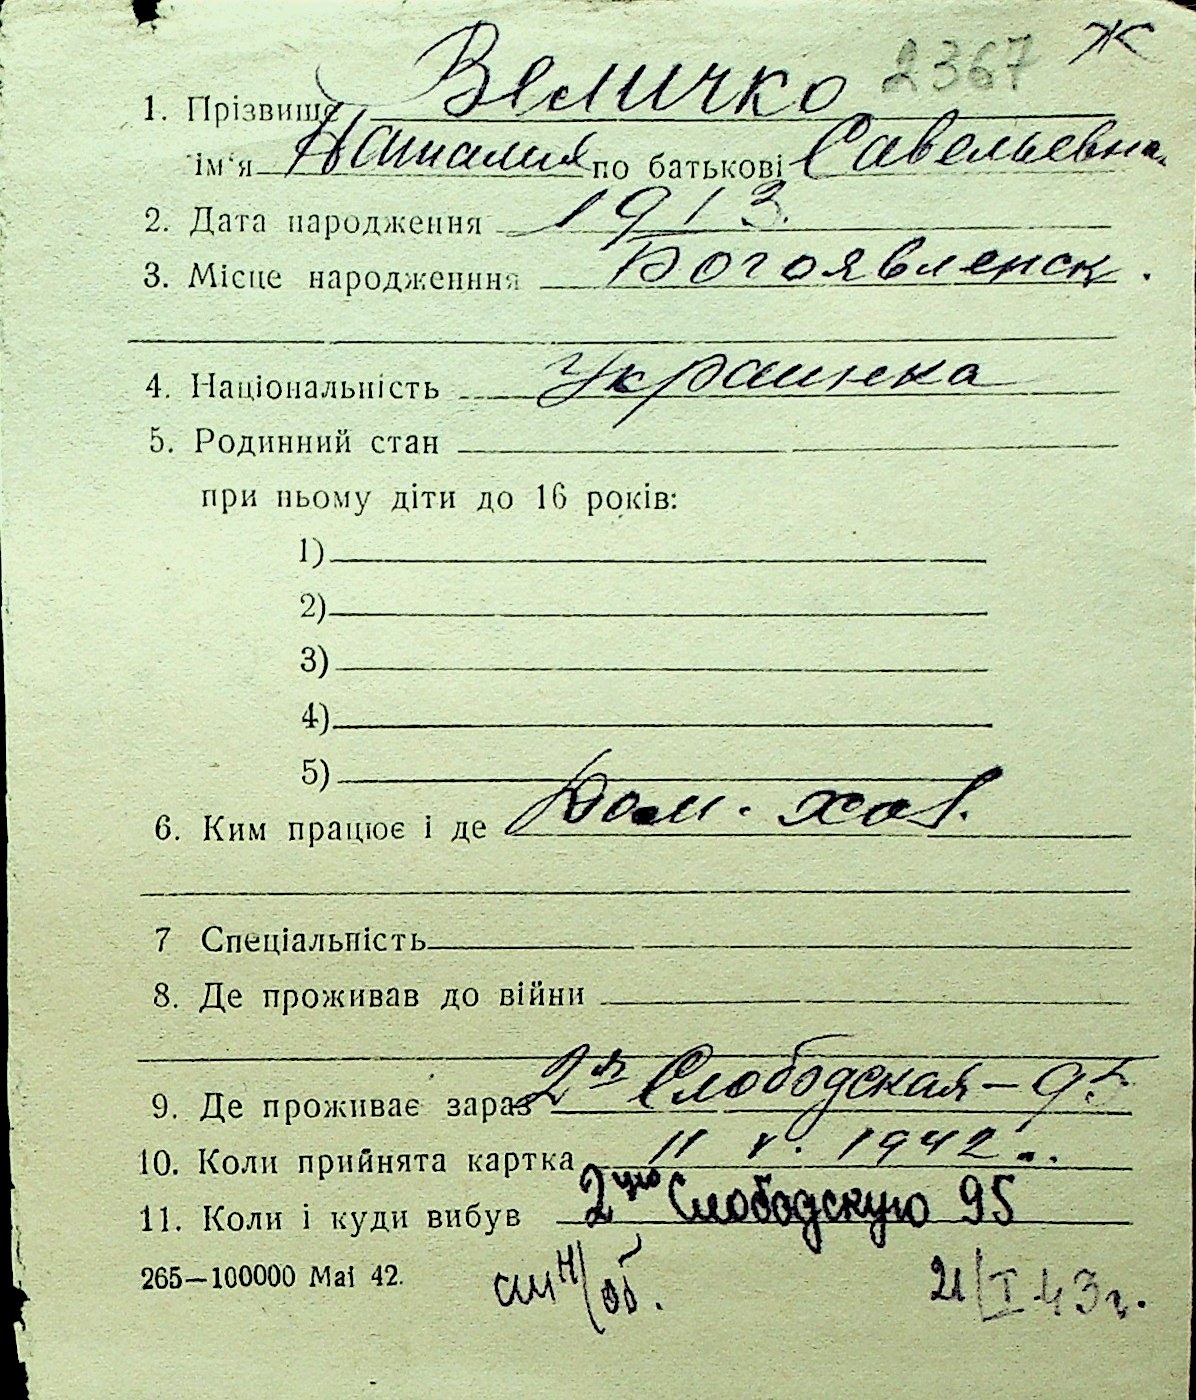 2367 Ж
1. Прізвище Величко
ім'я Наталия по батькові Савельевна
2. Дата народження 1913.
3. Місце народженння Богоявленск.
4. Національність Украинка
5. Родинний стан
при ньому діти до 16 років:
1)
2)
3)
4)
5)
6. Ким працює і де Дом. хоз.
7 Спеціальність
8. Де проживав до війни
9. Де проживає зараз 2я Слободская – 95
10. Коли прийнята картка 11 V. 1942
11. Коли і куди вибув 2ую Слободскую 95
265—100000 Mai 42. 21/I 43 г.